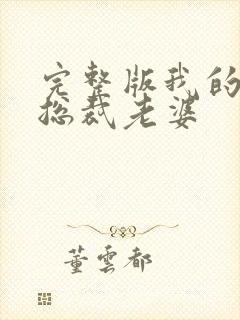 完整版我的
总裁老婆
董雲都